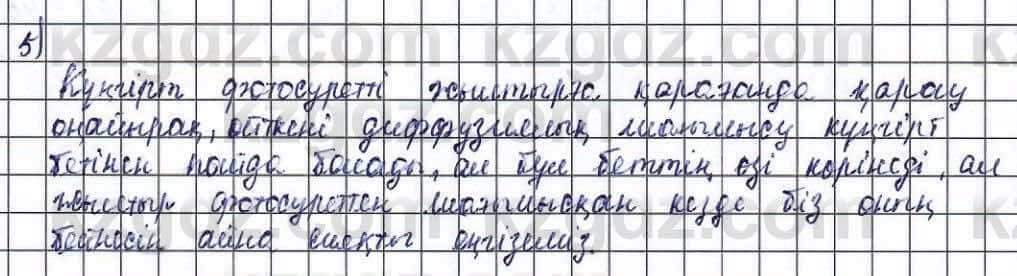 5)
Күңгірт фотосуретті жылтырға қарағанда қарау
оңайырақ, өйткені диффузиялық шағылысу күңгірт
бетінен пайда болады, ал бұл беттің өзі көрінеді, ал
жылтыр фотосуреттен шағылысқан кезде біз оның
бейнесін айна сияқты енгіземіз.
kzgdz.com kzgdz.com